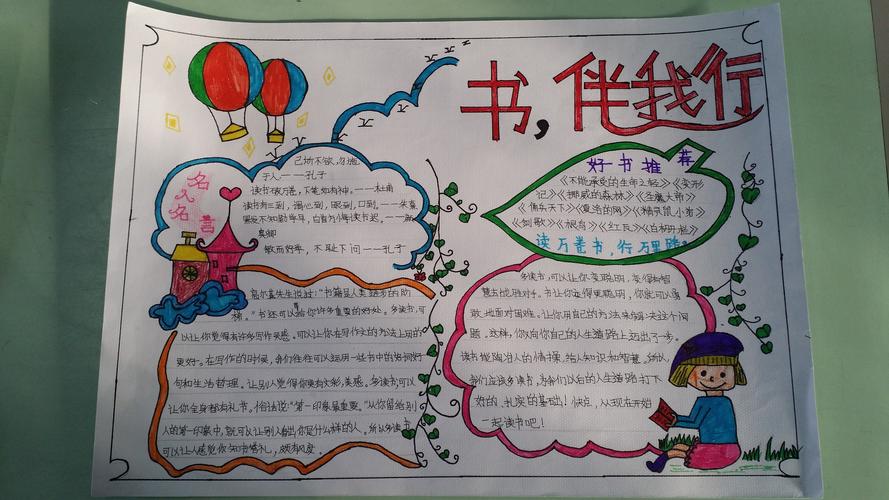 书,伴我行
名人名言
己所不欲,勿施
于人——孔子
读书破万卷,下笔如有神。——杜甫
读书有三到,谓心到,眼到,口到。——朱熹
黑发不知勤学早,白首方悔读书迟。——颜
真卿
敏而好学,不耻下问——孔子
好书推荐
《不能承受的生命之轻》《变形
记》《挪威的森林》《金庸大师》
《俏乐天下》《夏洛的网》《精灵鼠小弟》
《剑歌》《根鸟》《红瓦》《白栅栏》
读万卷书,行万里路
高尔基先生说过:“书籍是人类进步的阶
梯。”书还可以给你许多重要的好处。多读书,可
以让你觉得有许多写作灵感。可以让你在写作文的方法上用的
更好。在写作的时候,我们往往可以运用一些书中的好词好
句和生活哲理。让别人觉得你更有文彩,美感。多读书,可以
让你全身都有礼节。俗话说:“第一印象最重要。”从你留给别
人的第一印象中,就可以让别人看出你是什么样的人。所以多读书
可以让人感觉你知书答礼,颇有风度。
多读书,可以让你变聪明,变得有智
慧去战胜对手。书让你变得更聪明,你就可以勇
敢地面对困难。让你用自己的方法来解决这个问
题。这样,你又向你自己的人生道路上迈出了一步。
读书能陶冶人的情操,给人知识和智慧。所以,
我们应该多读书,为我们以后的人生道路打下
好的、扎实的基础!快点,从现在开始
一起读书吧!